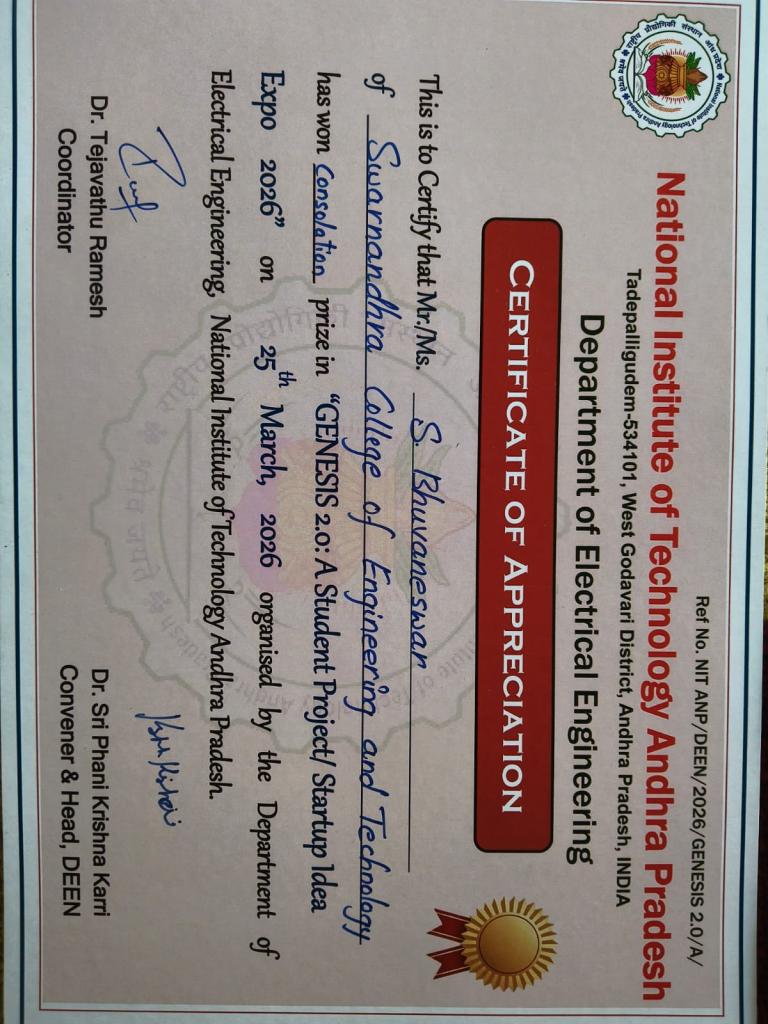 Ref No. NIT ANP/DEEN/2026/GENESIS 2.0/A/
National Institute of Technology Andhra Pradesh
Tadepalligudem-534101, West Godavari District, Andhra Pradesh, INDIA
Department of Electrical Engineering
CERTIFICATE OF APPRECIATION
This is to Certify that Mr./Ms. S. Bhuvaneswari
of Swarnandhra College of Engineering and Technology
has won Consolation prize in “GENESIS 2.0: A Student Project/ Startup Idea
Expo 2026” on 25th March, 2026 organised by the Department of
Electrical Engineering, National Institute of Technology Andhra Pradesh.
Dr. Tejavathu Ramesh
Coordinator
Dr. Sri Phani Krishna Karri
Convener & Head, DEEN
राष्ट्रीय प्रौद्योगिकी संस्थान आंध्र प्रदेश
National Institute of Technology Andhra Pradesh
श्रमेव जयते